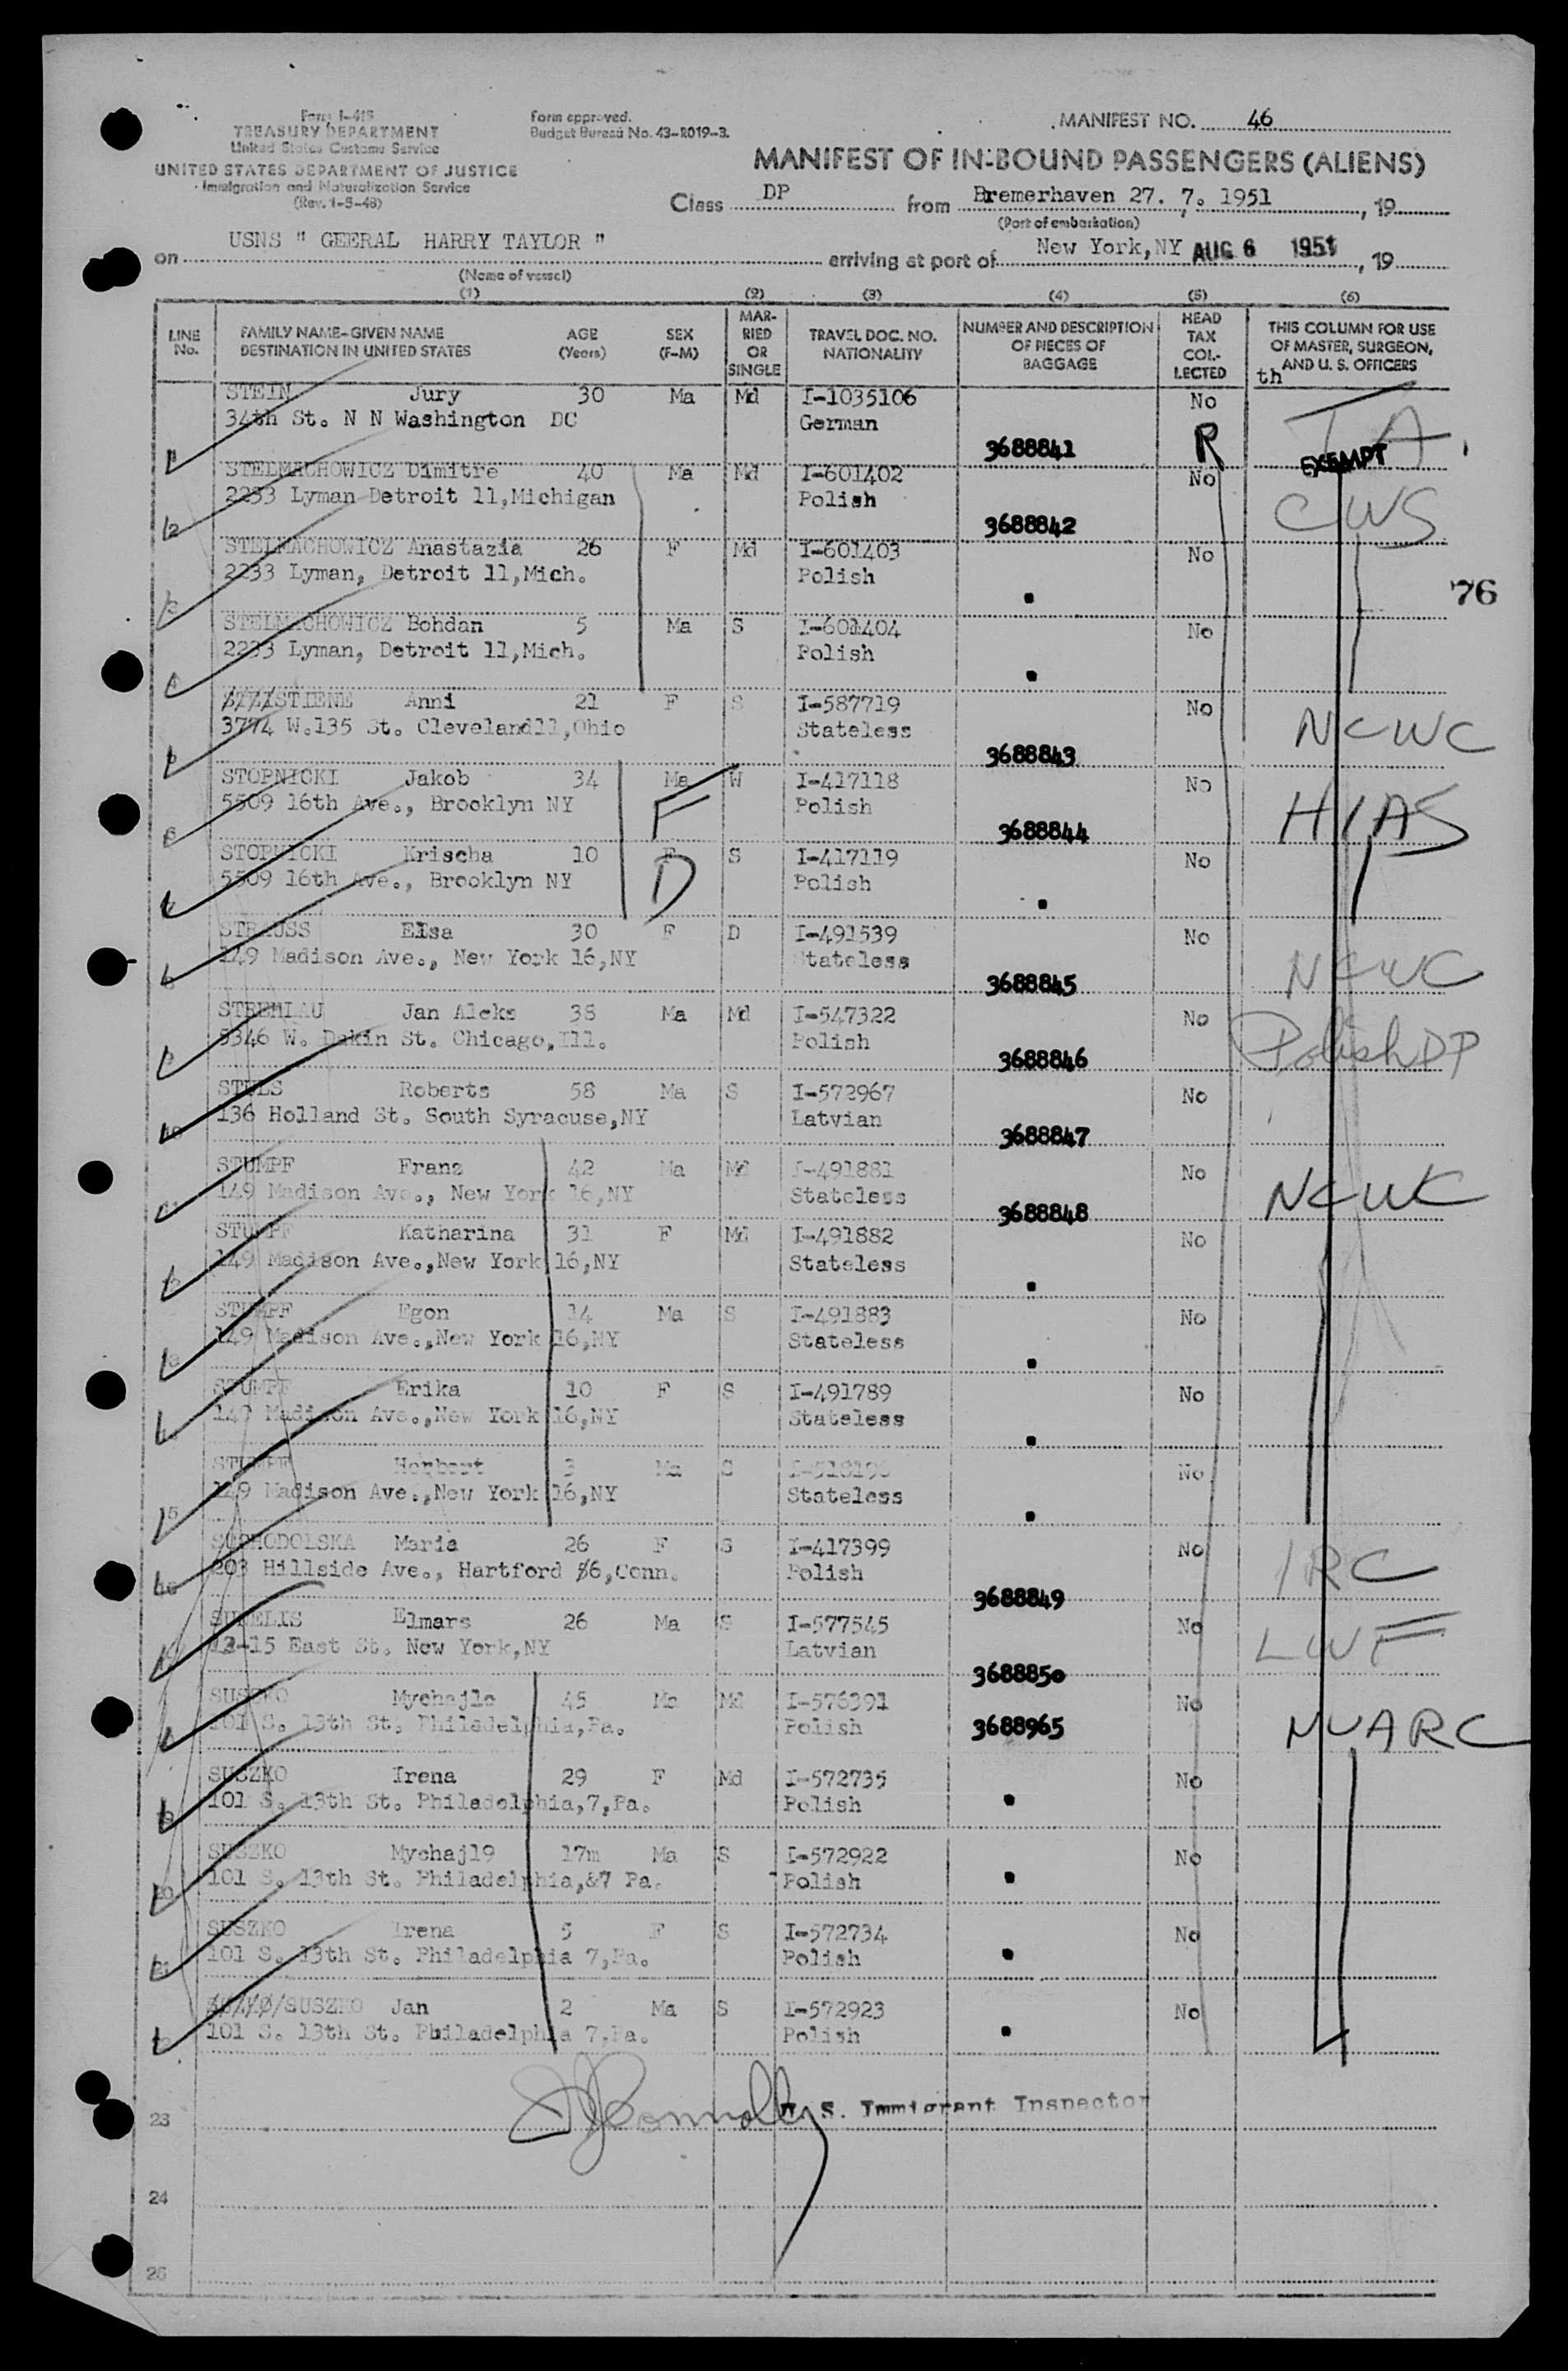 Form I-418
TREASURY DEPARTMENT
United States Customs Service
UNITED STATES DEPARTMENT OF JUSTICE
Immigration and Naturalization Service
(Rev. 1-5-48)
Form approved.
Budget Bureau No. 43-R019-3.
MANIFEST NO. 46
MANIFEST OF IN-BOUND PASSENGERS (ALIENS)
Class DP from Bremerhaven 27. 7. 1951, 19
(Port of embarkation)
on USNS " GEERAL HARRY TAYLOR " arriving at port of New York,NY AUG 6 1951, 19
(Name of vessel)
(1) (2) (3) (4) (5) (6)
LINE No. FAMILY NAME-GIVEN NAME DESTINATION IN UNITED STATES AGE (Years) SEX (F-M) MAR-RIED OR SINGLE TRAVEL DOC. NO. NATIONALITY NUMBER AND DESCRIPTION OF PIECES OF BAGGAGE HEAD TAX COL-LECTED THIS COLUMN FOR USE OF MASTER, SURGEON, AND U. S. OFFICERS
th
STEIN Jury 30 Ma Md I-1035106 No
34th St. N N Washington DC German
1 3688841 R EXEMPT
STELMACHOWICZ Dimitre 40 Ma Md I-601402 No
2233 Lyman Detroit 11,Michigan Polish CWS
2 3688842
STELMACHOWICZ Anastazia 26 F Md I-601403 No
2233 Lyman, Detroit 11,Mich. Polish
3 "
76
STELMACHOWICZ Bohdan 5 Ma S I-601404 No
2233 Lyman, Detroit 11,Mich. Polish
4 "
STIENE Anni 21 F S I-587719 No
3774 W.135 St. Cleveland11,Ohio Stateless NCWC
5 3688843
STOPNICKI Jakob 34 Ma W I-417118 No
5509 16th Ave., Brooklyn NY F Polish HIAS
6 3688844
STOPNICKI Krischa 10 F S I-417119 No
5509 16th Ave., Brooklyn NY D Polish
7 "
STRAUSS Elsa 30 F D I-491539 No
149 Madison Ave., New York 16,NY Stateless NCWC
8 3688845
STREMLAU Jan Aleks 38 Ma Md I-547322 No
5346 W. Dakin St. Chicago,Ill. Polish Polish DP
9 3688846
STULS Roberts 58 Ma S I-572967 No
136 Holland St. South Syracuse,NY Latvian
10 3688847
STUMPF Franz 42 Ma Md I-491881 No
149 Madison Ave., New York 16,NY Stateless NCWC
11 3688848
STUMPF Katharina 31 F Md I-491882 No
149 Madison Ave.,New York 16,NY Stateless
12 "
STUMPF Egon 14 Ma S I-491883 No
149 Madison Ave.,New York 16,NY Stateless
13 "
STUMPF Erika 10 F S I-491789 No
149 Madison Ave.,New York 16,NY Stateless
"
STUMPF Herbert 3 Ma S No
149 Madison Ave.,New York 16,NY Stateless
15 "
SUCHODOLSKA Maria 26 F S I-417399 No
203 Hillside Ave., Hartford 6,Conn. Polish IRC
16 3688849
Elmars 26 Ma S I-577545 No
13-15 East St. New York,NY Latvian LWF
3688850
SUSZKO Mychajlo 45 Ma Md I-576391 No
101 S. 13th St. Philadelphia,Pa. Polish 3688965 NUARC
SUSZKO Irena 29 F Md I-572735 No
101 S. 13th St. Philadelphia,7,Pa. Polish "
19
SUSZKO Mychajl9 17m Ma S I-572922 No
101 S. 13th St. Philadelphia,&7 Pa. Polish "
20
SUSZKO Irena 5 F S I-572734 No
101 S. 13th St. Philadelphia 7,Pa. Polish "
21
SUSZKO Jan 2 Ma S I-572923 No
101 S. 13th St. Philadelphia 7,Pa. Polish "
22
Connolly U. S. Immigrant Inspector
23
24
25